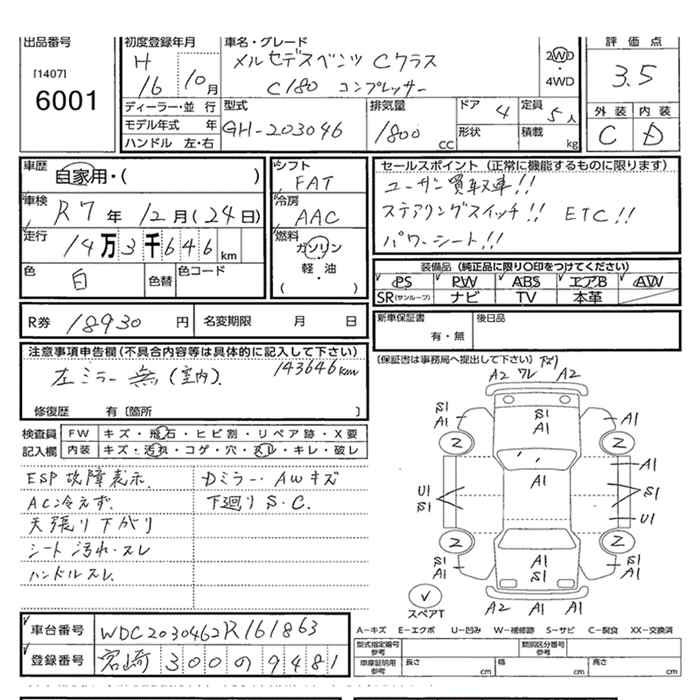 出品番号
[1407]
6001
初度登録年月
H
16 10月
車名・グレード
メルセデスベンツ Cクラス
C180 コンプレッサー
2WD
・
4WD
評価点
3.5
外装 内装
C D
ディーラー・並行
モデル年式 年
ハンドル 左・右
型式
GH-203046
排気量
1800 cc
ドア 4
形状
定員 5人
積載 kg
車歴
自家用・( )
車検
R7年 12月(24日)
走行
14万3千646km
色
白
色替
色コード
シフト
FAT
冷房
AAC
燃料
ガソリン
軽・油
( )
セールスポイント(正常に機能するものに限ります)
ユーザー買取車!!
ステアリングスイッチ!! ETC!!
パワーシート!!
装備品(純正品に限り○印をつけてください)
PS PW ABS エアB AW
SR(サンルーフ) ナビ TV 本革
R券 18930円
名変期限 月 日
新車保証書
有・無
後日品
(保証書は事務局へ提出して下さい)
注意事項申告欄(不具合内容等は具体的に記入して下さい)
左ミラー無(室内) 143646km
修復歴 有〔箇所 〕
検査員
記入欄
FW キズ・飛石・ヒビ割・リペア跡・X要
内装 キズ・汚れ・コゲ・穴・スレ・キレ・破レ
ESP故障表示. Dミラー・AWキズ
AC冷えず. 下廻りS.C.
天張り下がり
シート汚れ・スレ
ハンドルスレ.
A2 ワレ A2
S1
A1
S1
A1
A1
2
2
A1
A1
U1
S1
S1
U1
2
2
S1
A1
A1
S1
S1
A1
A2 A1 A2
スペアT
A−キズ E−エクボ U−凹み W−補修跡 S−サビ C−腐食 XX−交換済
車台番号 WDC2030462R161863
登録番号 宮崎 300の9481
型式指定番号
参考
類別区分番号
参考
車庫証明用
参考
長さ cm
幅 cm
高さ cm